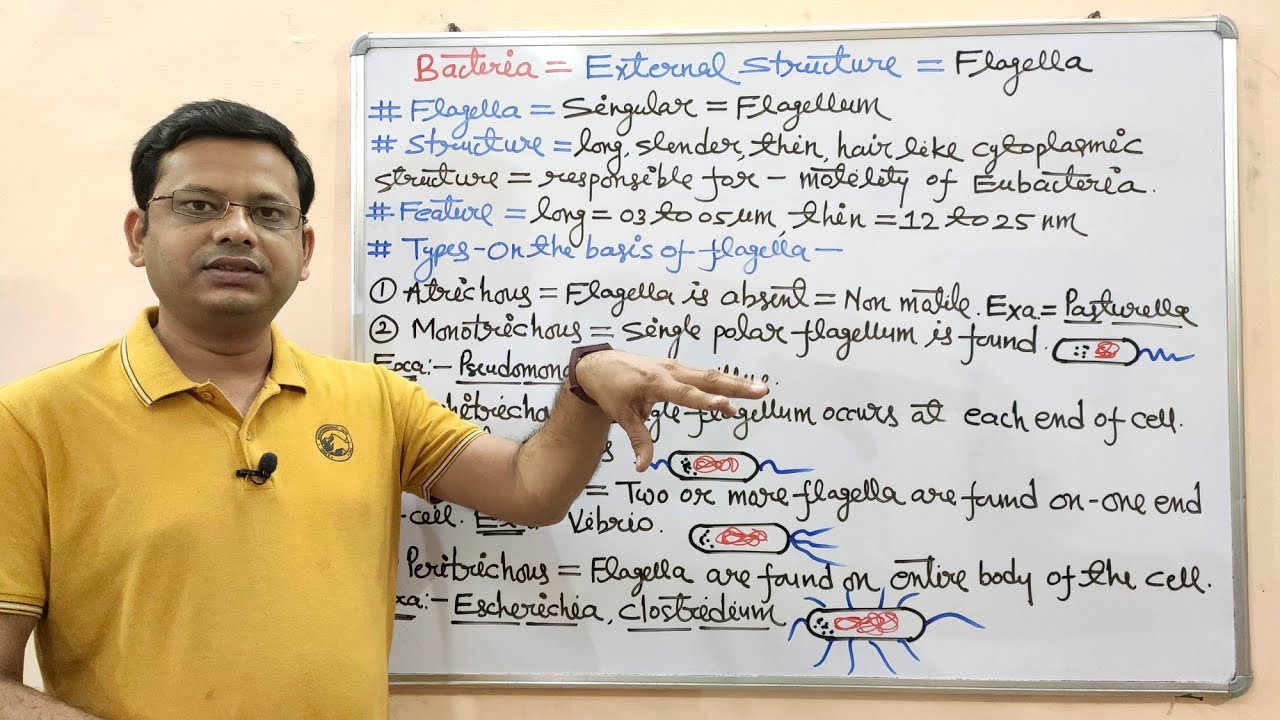 Bacteria = External structure = Flagella
# Flagella = Singular = Flagellum
# Structure = long, slender, thin, hair like cytoplasmic
structure = responsible for - motility of Eubacteria.
# Feature = long = 03 to 05 um, thin = 12 to 25 nm
# Types - On the basis of flagella -
① Atrichous = Flagella is absent = Non motile. Exa = Pasturella
② Monotrichous = Single polar flagellum is found.
Exa:-
flagellum occurs at each end of cell.
= Two or more flagella are found on - one end
cell. Vibrio.
Peritrichous = Flagella are found on entire body of the cell.
Exa:- Escherichia, Clostridium